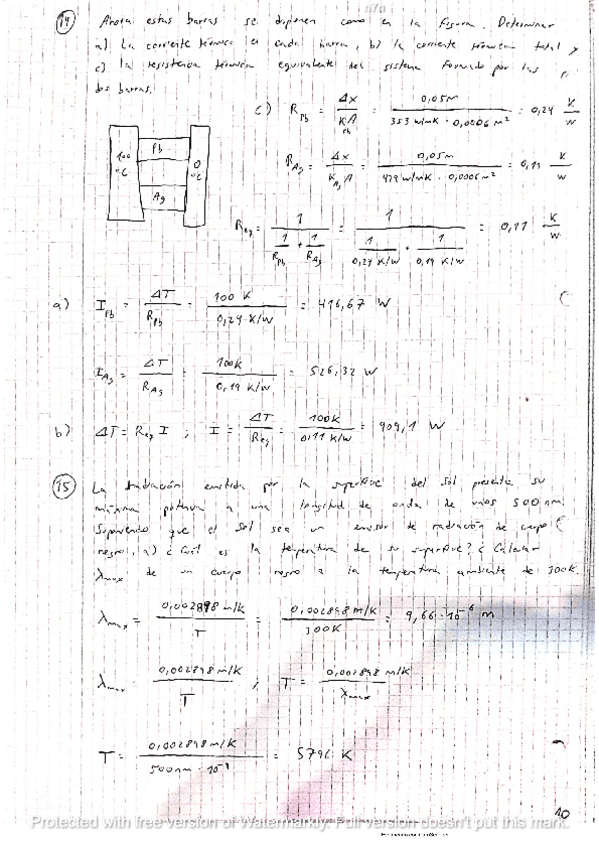 14 Ahora estas barras se disponen como en la figura. Determinar
a) la corriente térmica en cada barra, b) la corriente térmica total y
c) la resistencia térmica equivalente del sistema formado por las
dos barras.
c) R_Pb = Δx / K_Pb A = 0,05m / 353 w/mK · 0,0006 m² = 0,24 K/W
100 °C Pb Ag 0 °C
R_Ag = Δx / K_Ag A = 0,05m / 429 w/mK · 0,0006 m² = 0,19 K/W
R_eq = 1 / (1/R_Pb + 1/R_Ag) = 1 / (1/0,24 K/W + 1/0,19 K/W) = 0,11 K/W
a) I_Pb = ΔT / R_Pb = 100 K / 0,24 K/W = 416,67 W
I_Ag = ΔT / R_Ag = 100K / 0,19 K/W = 526,32 W
b) ΔT = R_eq I ; I = ΔT / R_eq = 100K / 0,11 K/W = 909,1 W
15 La radiación emitida por la superficie del Sol presenta su
máxima potencia a una longitud de onda de unos 500 nm.
Suponiendo que el Sol sea un emisor de radiación de cuerpo
negro, a) ¿Cuál es la temperatura de su superficie? ¿Calcular
λmax de un cuerpo negro a la temperatura ambiente de 300K.
λmax = 0,002898 m/K / T = 0,002898 m/K / 300K = 9,66·10⁻⁶ m
λmax = 0,002898 m/K / T ; T = 0,002898 m/K / λmax
T = 0,002898 m/K / 500nm · 10⁻⁹ = 5796 K
10
Protected with free version of Watermarkly. Full version doesn't put this mark.